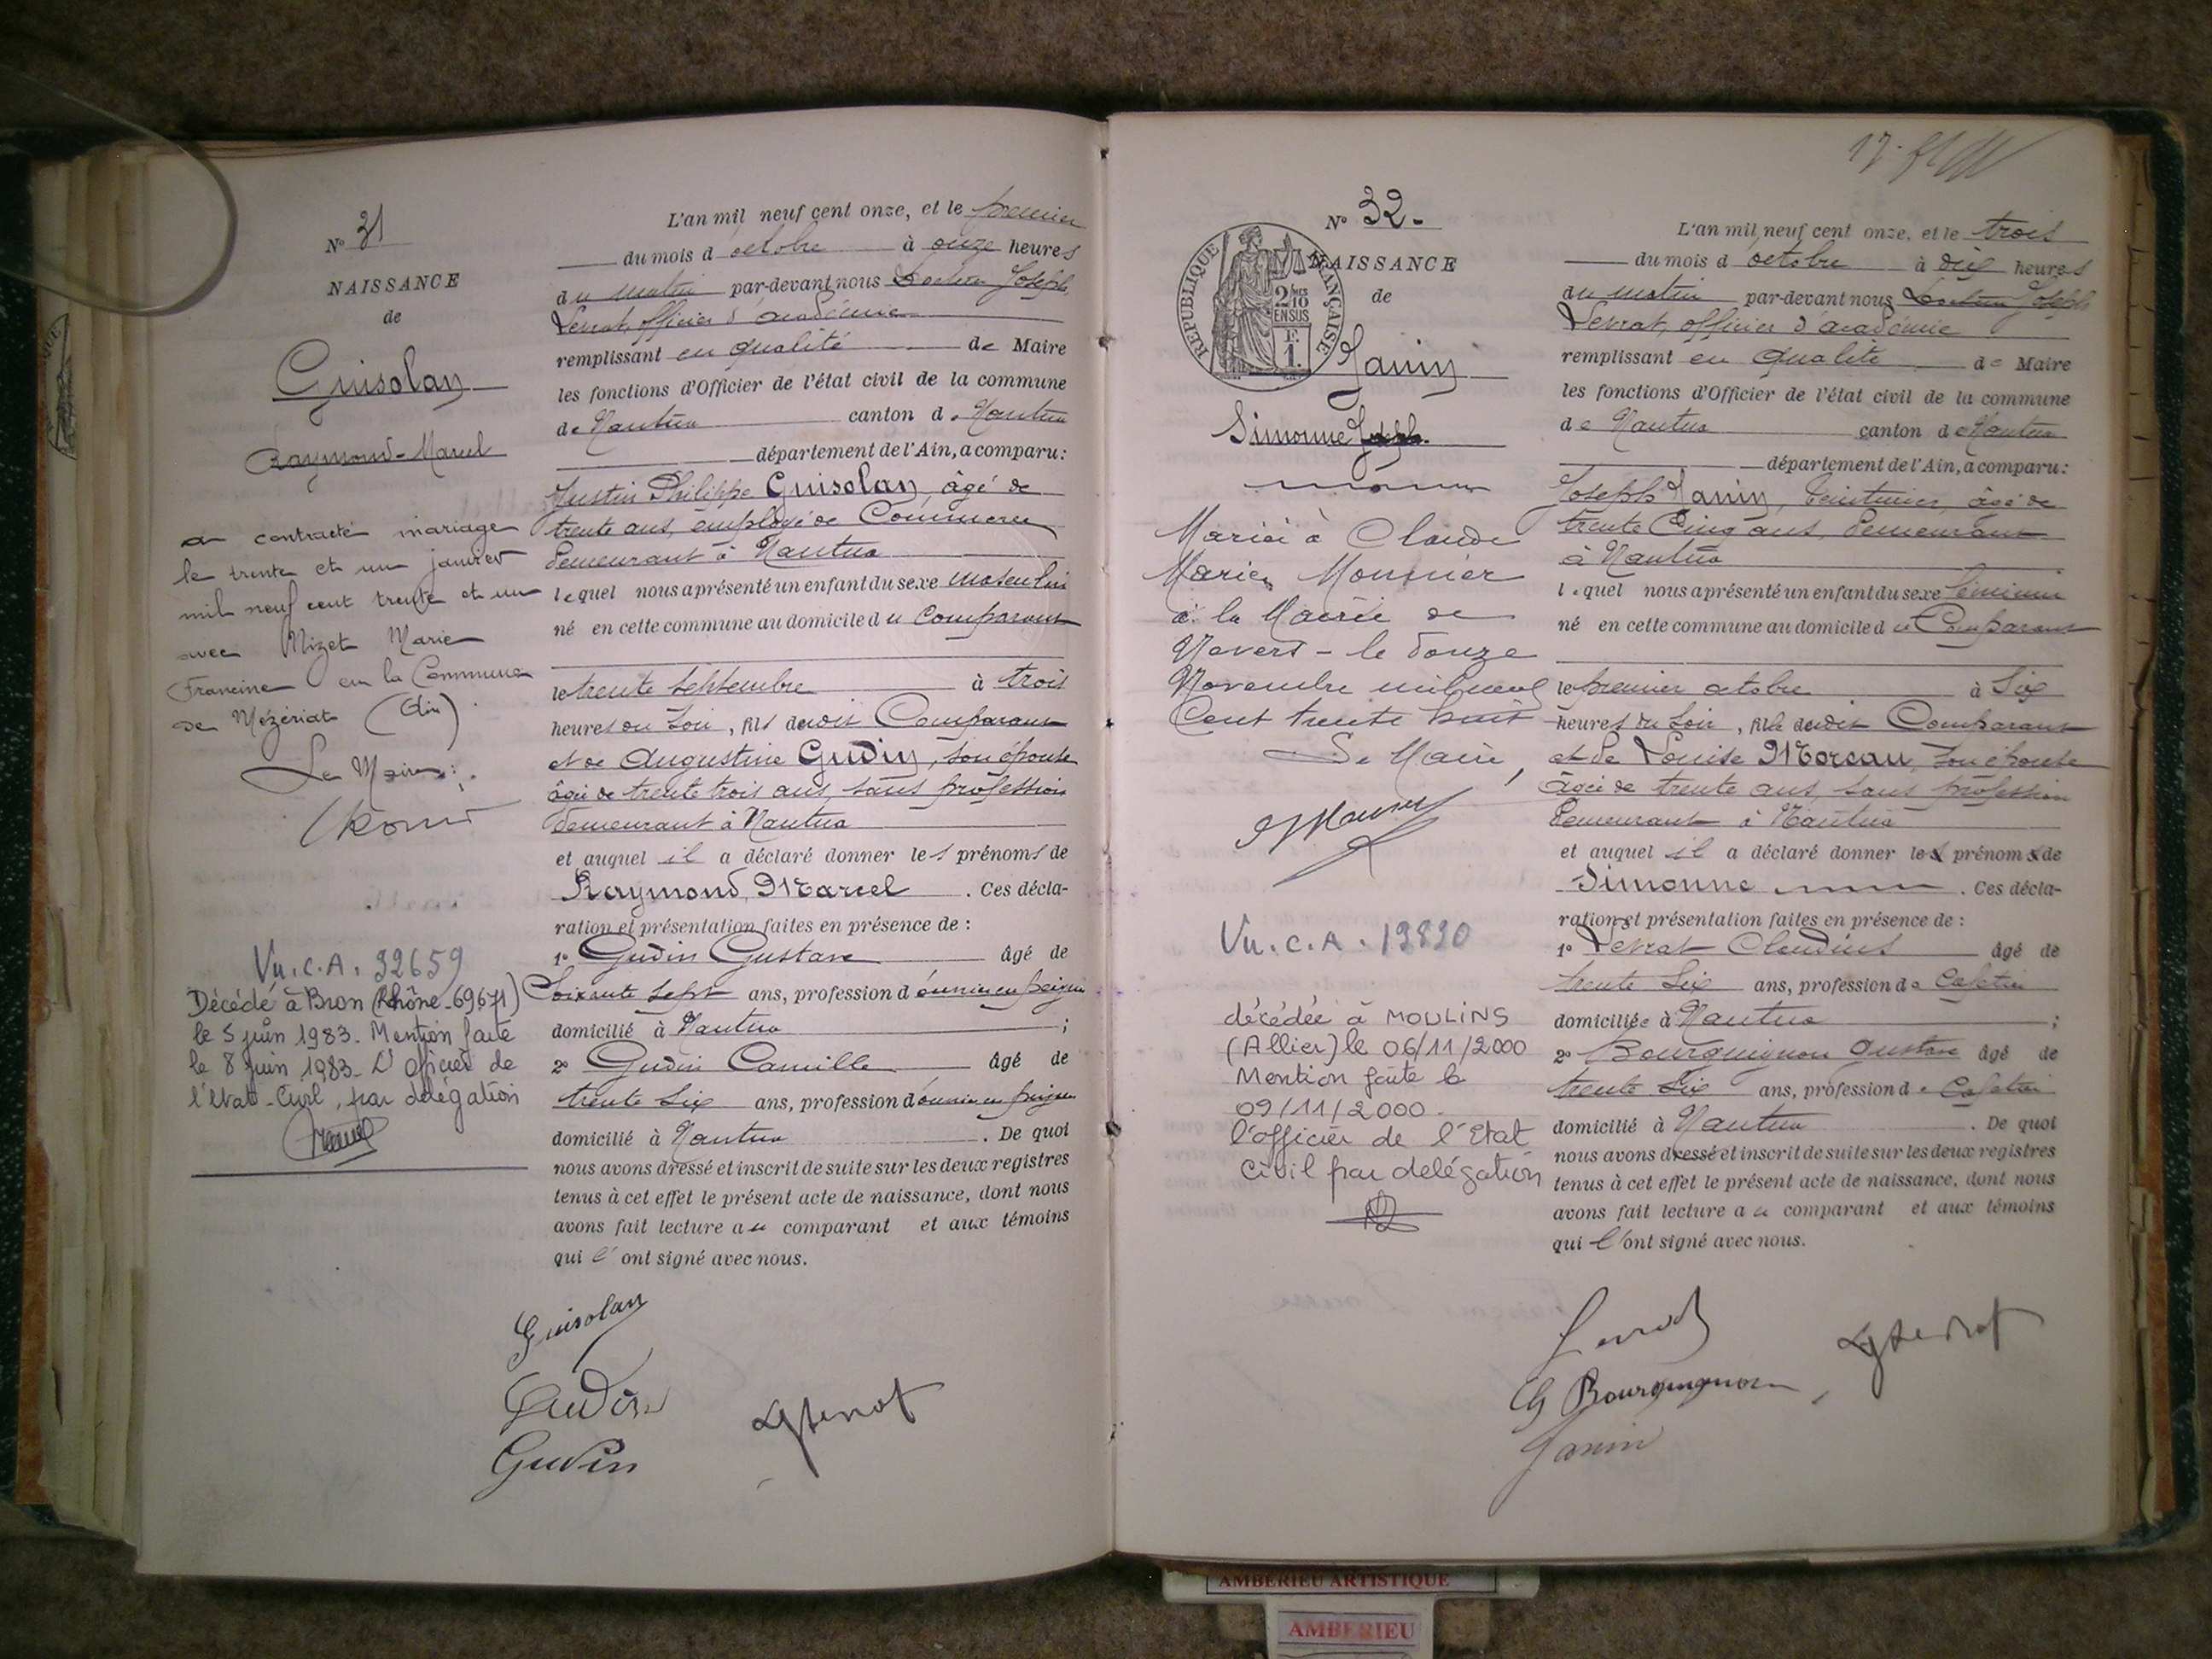 N° 31
NAISSANCE
de
Guisolan
Raymond-Marcel
a contracté mariage
le trente et un janvier
mil neuf cent trente et un
avec Nizet Marie
Francine en la Commune
de Mézériat (Ain).
Le Maire:
Vu.C.A. 92659
Décédé à Bron (Rhône-69671)
le 5 juin 1983. Mention faite
le 8 juin 1983. L'Officier de
l'Etat-Civil, par délégation
L'an mil neuf cent onze, et le premier
du mois d'octobre à onze heures
du matin par-devant nous Docteur Joseph
Levrat, officier d'académie
remplissant en qualité de Maire
les fonctions d'Officier de l'état civil de la commune
de Nantua canton de Nantua
département de l'Ain, a comparu:
Justin Philippe Guisolan, âgé de
trente ans, employé de Commerce
demeurant à Nantua
lequel nous a présenté un enfant du sexe masculin
né en cette commune au domicile du Comparant
le trente septembre à trois
heures du soir, fils dudit Comparant
et de Augustine Gudin, son épouse
âgée de trente trois ans, sans profession
demeurant à Nantua
et auquel il a déclaré donner les prénoms de
Raymond, Marcel. Ces décla-
ration et présentation faites en présence de:
1° Gudin Gustave âgé de
Soixante sept ans, profession d'ouvrier en peignes
domicilié à Nantua;
2° Gudin Camille âgé de
trente six ans, profession d'ouvrier en peignes
domicilié à Nantua. De quoi
nous avons dressé et inscrit de suite sur les deux registres
tenus à cet effet le présent acte de naissance, dont nous
avons fait lecture au comparant et aux témoins
qui l'ont signé avec nous.
Guisolan
Gudin
Gudin
Levrat
N° 32.
RÉPUBLIQUE FRANÇAISE
2/10 EN SUS
F. 1.
NAISSANCE
de
Janin
Simonne
Mariée à Claude
Marien Mounier
à la Mairie de
Nevers - le douze
Novembre mil neuf
Cent trente huit
Le Maire,
Vu.C.A. 19890
décédée à MOULINS
(Allier) le 06/11/2000
Mention faite le
09/11/2000.
l'officier de l'Etat
Civil par delégation
L'an mil neuf cent onze, et le trois
du mois d'octobre à dix heures
du matin par-devant nous Docteur Joseph
Levrat, officier d'académie
remplissant en qualité de Maire
les fonctions d'Officier de l'état civil de la commune
de Nantua canton de Nantua
département de l'Ain, a comparu:
Joseph Janin, teinturier, âgé de
trente Cinq ans, demeurant
à Nantua
lequel nous a présenté un enfant du sexe féminin
né en cette commune au domicile du Comparant
le premier octobre à Six
heures du soir, fille dudit Comparant
et de Louise Moreau, son épouse
âgée de trente ans, sans profession
demeurant à Nantua
et auquel il a déclaré donner le prénom de
Simonne. Ces décla-
ration et présentation faites en présence de:
1° Levrat Claudius âgé de
trente six ans, profession de Cafetier
domicilié à Nantua;
2° Bourguignon Gustave âgé de
trente six ans, profession de Cafetier
domicilié à Nantua. De quoi
nous avons dressé et inscrit de suite sur les deux registres
tenus à cet effet le présent acte de naissance, dont nous
avons fait lecture au comparant et aux témoins
qui l'ont signé avec nous.
Levrat
G Bourguignon
Janin
Levrat
AMBERIEU ARTISTIQUE
AMBERIEU